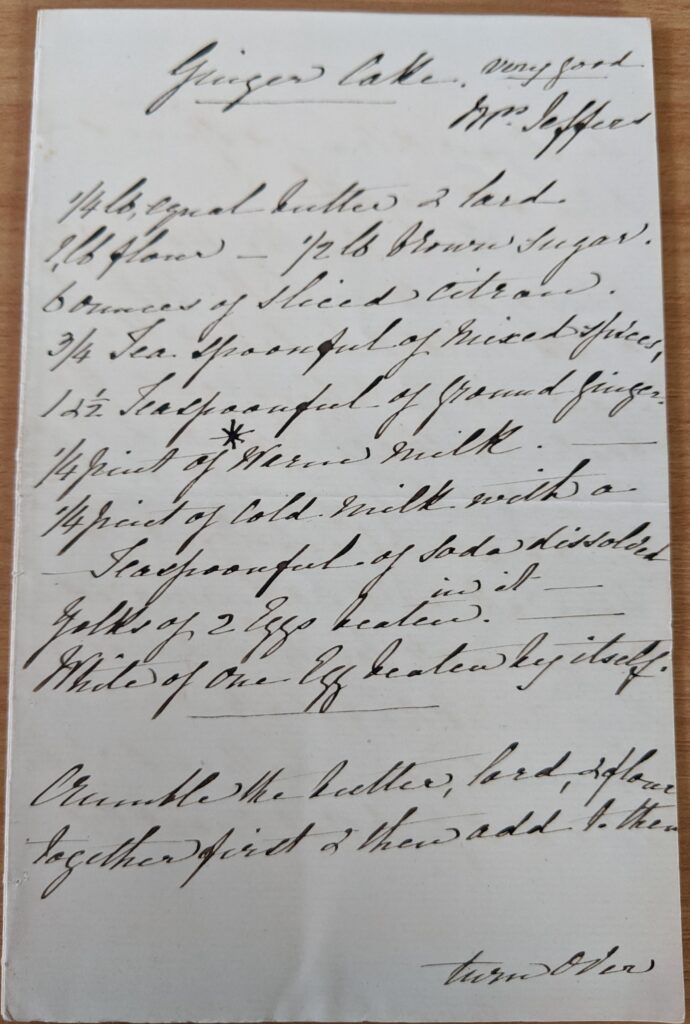 Ginger Cake. very good
Mrs Jeffers
1/4 lb, equal butter & lard.
1 lb flour — 1/2 lb brown sugar.
6 ounces of sliced citron.
3/4 Tea spoonful of mixed spices,
1 & 1/2 Teaspoonful of ground ginger.
*
1/4 pint of Warm Milk. —
1/4 pint of Cold Milk with a
— Teaspoonful of soda dissolved
in it —
Yolks of 2 Eggs beaten. —
White of one Egg beaten by itself.
Crumble the butter, lard, & flour
together first & then add to them
turn over